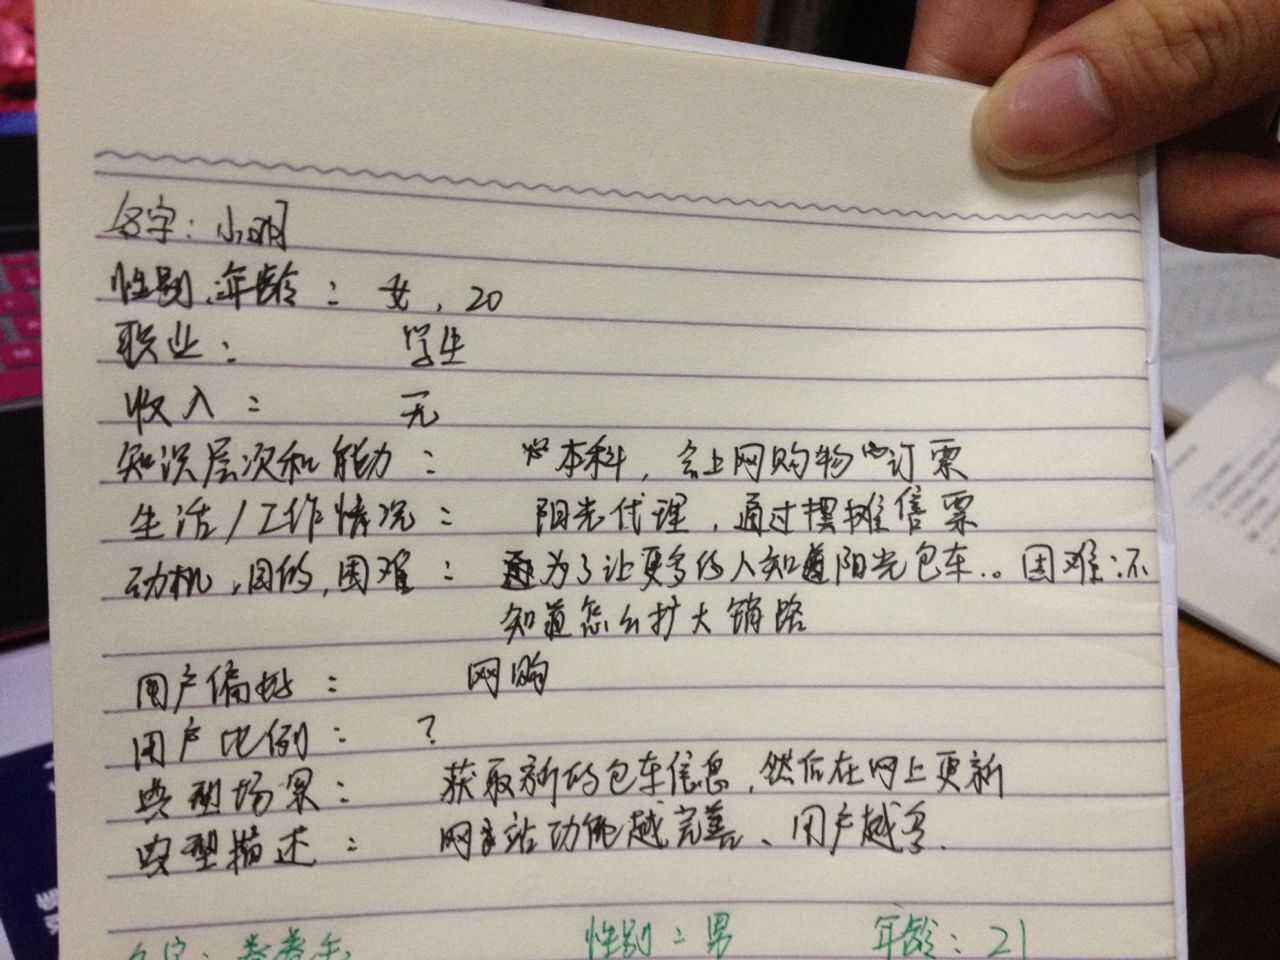 名字：小明
性别、年龄：女，20
职业：学生
收入：无
知识层次和能力：本科，会上网购物订票
生活/工作情况：阳光代理，通过摆摊售票
动机，目的，困难：为了让更多的人知道阳光包车。。困难：不
知道怎么扩大销路
用户偏好：网购
用户比例：？
典型场景：获取新的包车信息，然后在网上更新
典型描述：网站功能越完善、用户越多.
名字：
性别：男 年龄：21